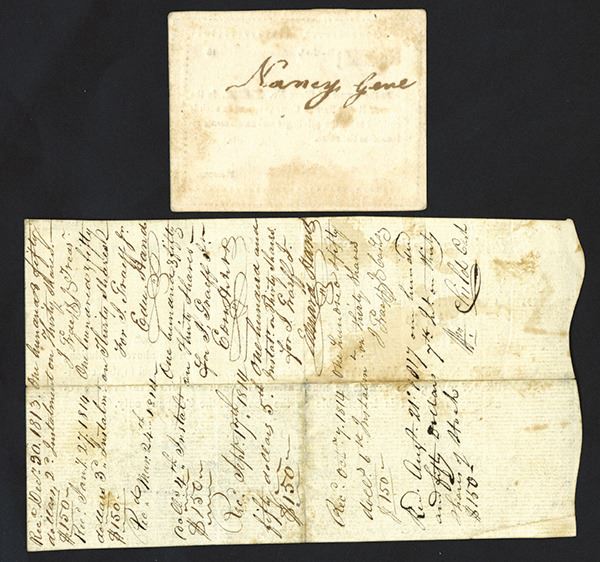 Nancy Gene
Recd Decr 30. 1813. One hundred fifty
dollars 2d Instalment on Thirty Shares
$150 —
Recd Jany 27. 1814 One hundred & fifty
dollars 3d Instalmt on Thirty Shares
$150 — For J. Graff Jr.
Recd Mar 24th 1814 — One hundred & fifty
dolls 4th Instalt on Thirty Shares
$150 — for J. Graff Jr.
Recd Sept 17th 1814 One hundred and
fifty dollars 5th Instalt on Thirty Shares
$150 — for J. Graff Jr.
Recd 7. 1814 One hundred & fifty
dolls 6th Instalmt on Thirty Shares
$150 —
Recd Augt 21st 1817 one hundred
and fifty Dollars 7th on thirty
Shares of Stock
$150 — Wm